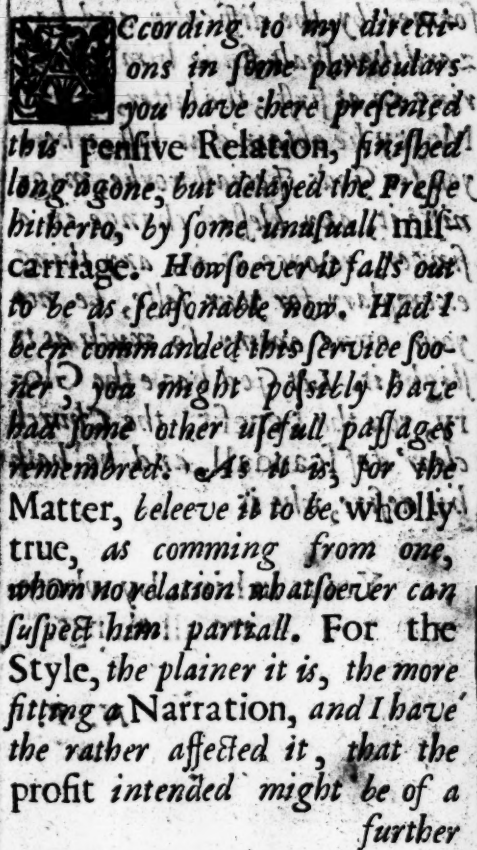 ACcording to my directi-
ons in some particulars
you have here presented
this pensive Relation, finished
long agone, but delayed the Presse
hitherto, by some unusuall mis-
carriage. Howsoever it falls out
to be as seasonable now. Had I
been commanded this service soo-
ner, you might possibly have
had some other usefull passages
remembred. As it is, for the
Matter, beleeve it to be wholly
true, as comming from one,
whom no relation whatsoever can
suspect him partiall. For the
Style, the plainer it is, the more
fitting a Narration, and I have
the rather affected it, that the
profit intended might be of a
further